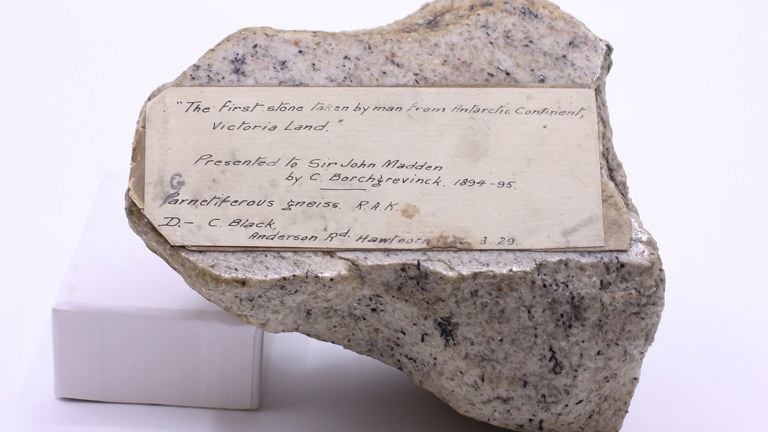 "The first stone taken by man from Antarctic Continent,
Victoria Land."
Presented to Sir John Madden
by C. Borchgrevinck. 1894-95.
G
Parnetiferous gneiss R.A.K
D.- C. Black,
Anderson Rd. Hawthorn 3.29.